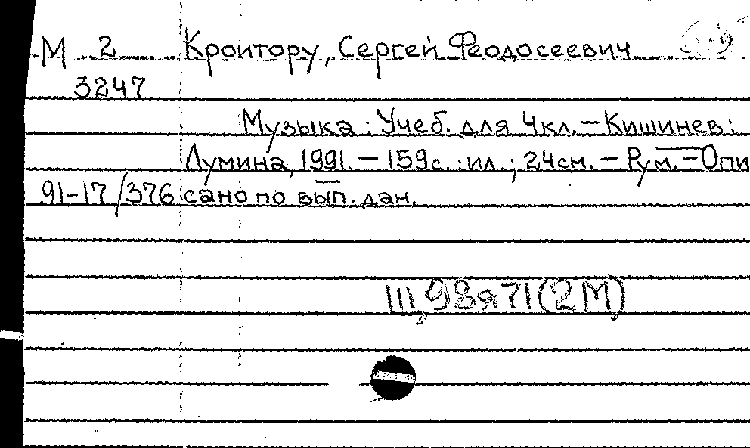 М 2 Кроитору, Сергей Феодосеевич
3247
Музыка : Учеб. для 4кл. – Кишинев :
Лумина, 1991. – 159с. : ил. ; 24см. – Рум. – Опи
91-17/376 сано по вып. дан.
Щ98я71(2М)